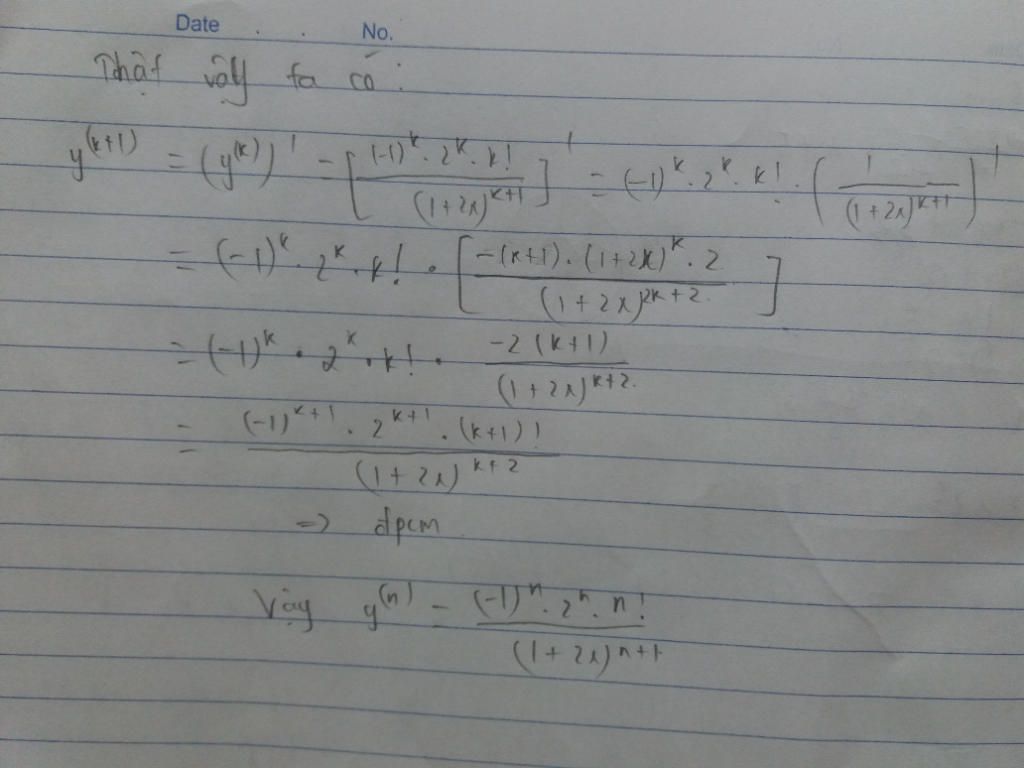 Date . . No.
Thật vậy ta có:
y^(k+1) = (y^(k))' = [(-1)^k . 2^k . k! / (1+2x)^(k+1)]' = (-1)^k . 2^k . k! . (1 / (1+2x)^(k+1))'
= (-1)^k . 2^k . k! . [-(k+1) . (1+2x)^k . 2 / (1+2x)^(2k+2)]
= (-1)^k . 2^k . k! . -2(k+1) / (1+2x)^(k+2)
= (-1)^(k+1) . 2^(k+1) . (k+1)! / (1+2x)^(k+2)
=> đpcm
Vậy y^(n) = (-1)^n . 2^n . n! / (1+2x)^(n+1)